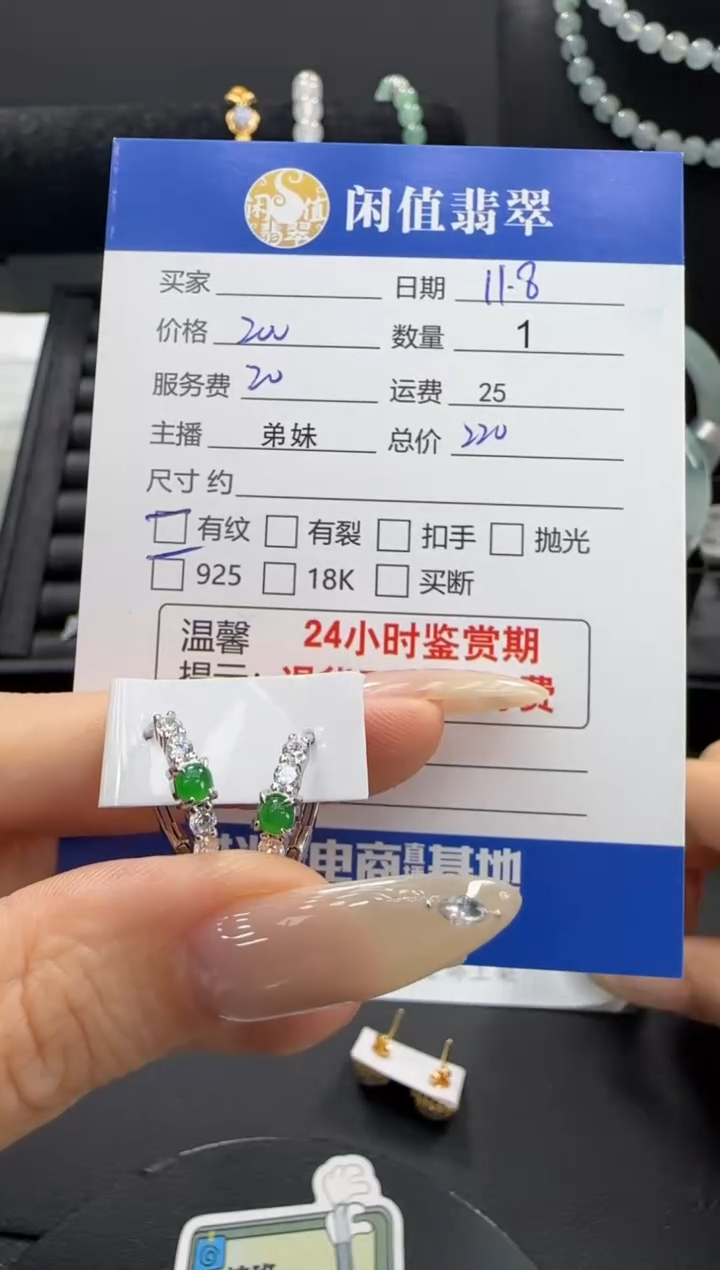 闲值翡翠
闲值翡翠
买家 日期 11.8
价格 200 数量 1
服务费 20 运费 25
主播 弟妹 总价 220
尺寸 约
有纹 有裂 扣手 抛光
925 18K 买断
温馨 24小时鉴赏期
提示: 费
电商直播基地